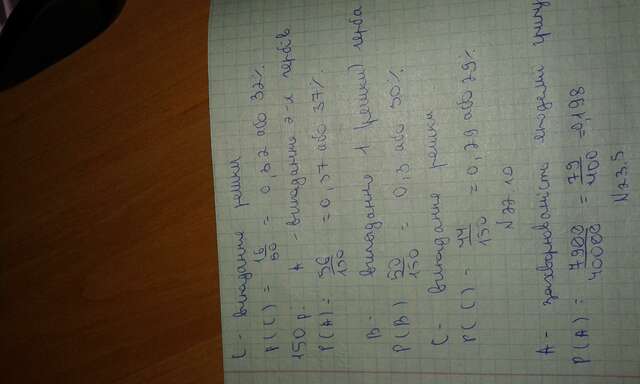 C - випадання решки
P(C) = 16/50 = 0,32 або 32%.
150 р. A - випадання 2-х гербів
P(A) = 56/150 = 0,37 або 37%.
B - випадання 1 (решки) герба
P(B) = 50/150 = 0,3 або 30%.
C - випадання решки
P(C) = 44/150 = 0,29 або 29%.
№22.10
A - захворюваність епідемії грипу
P(A) = 7900/40000 = 79/400 = 0,198
№23.5